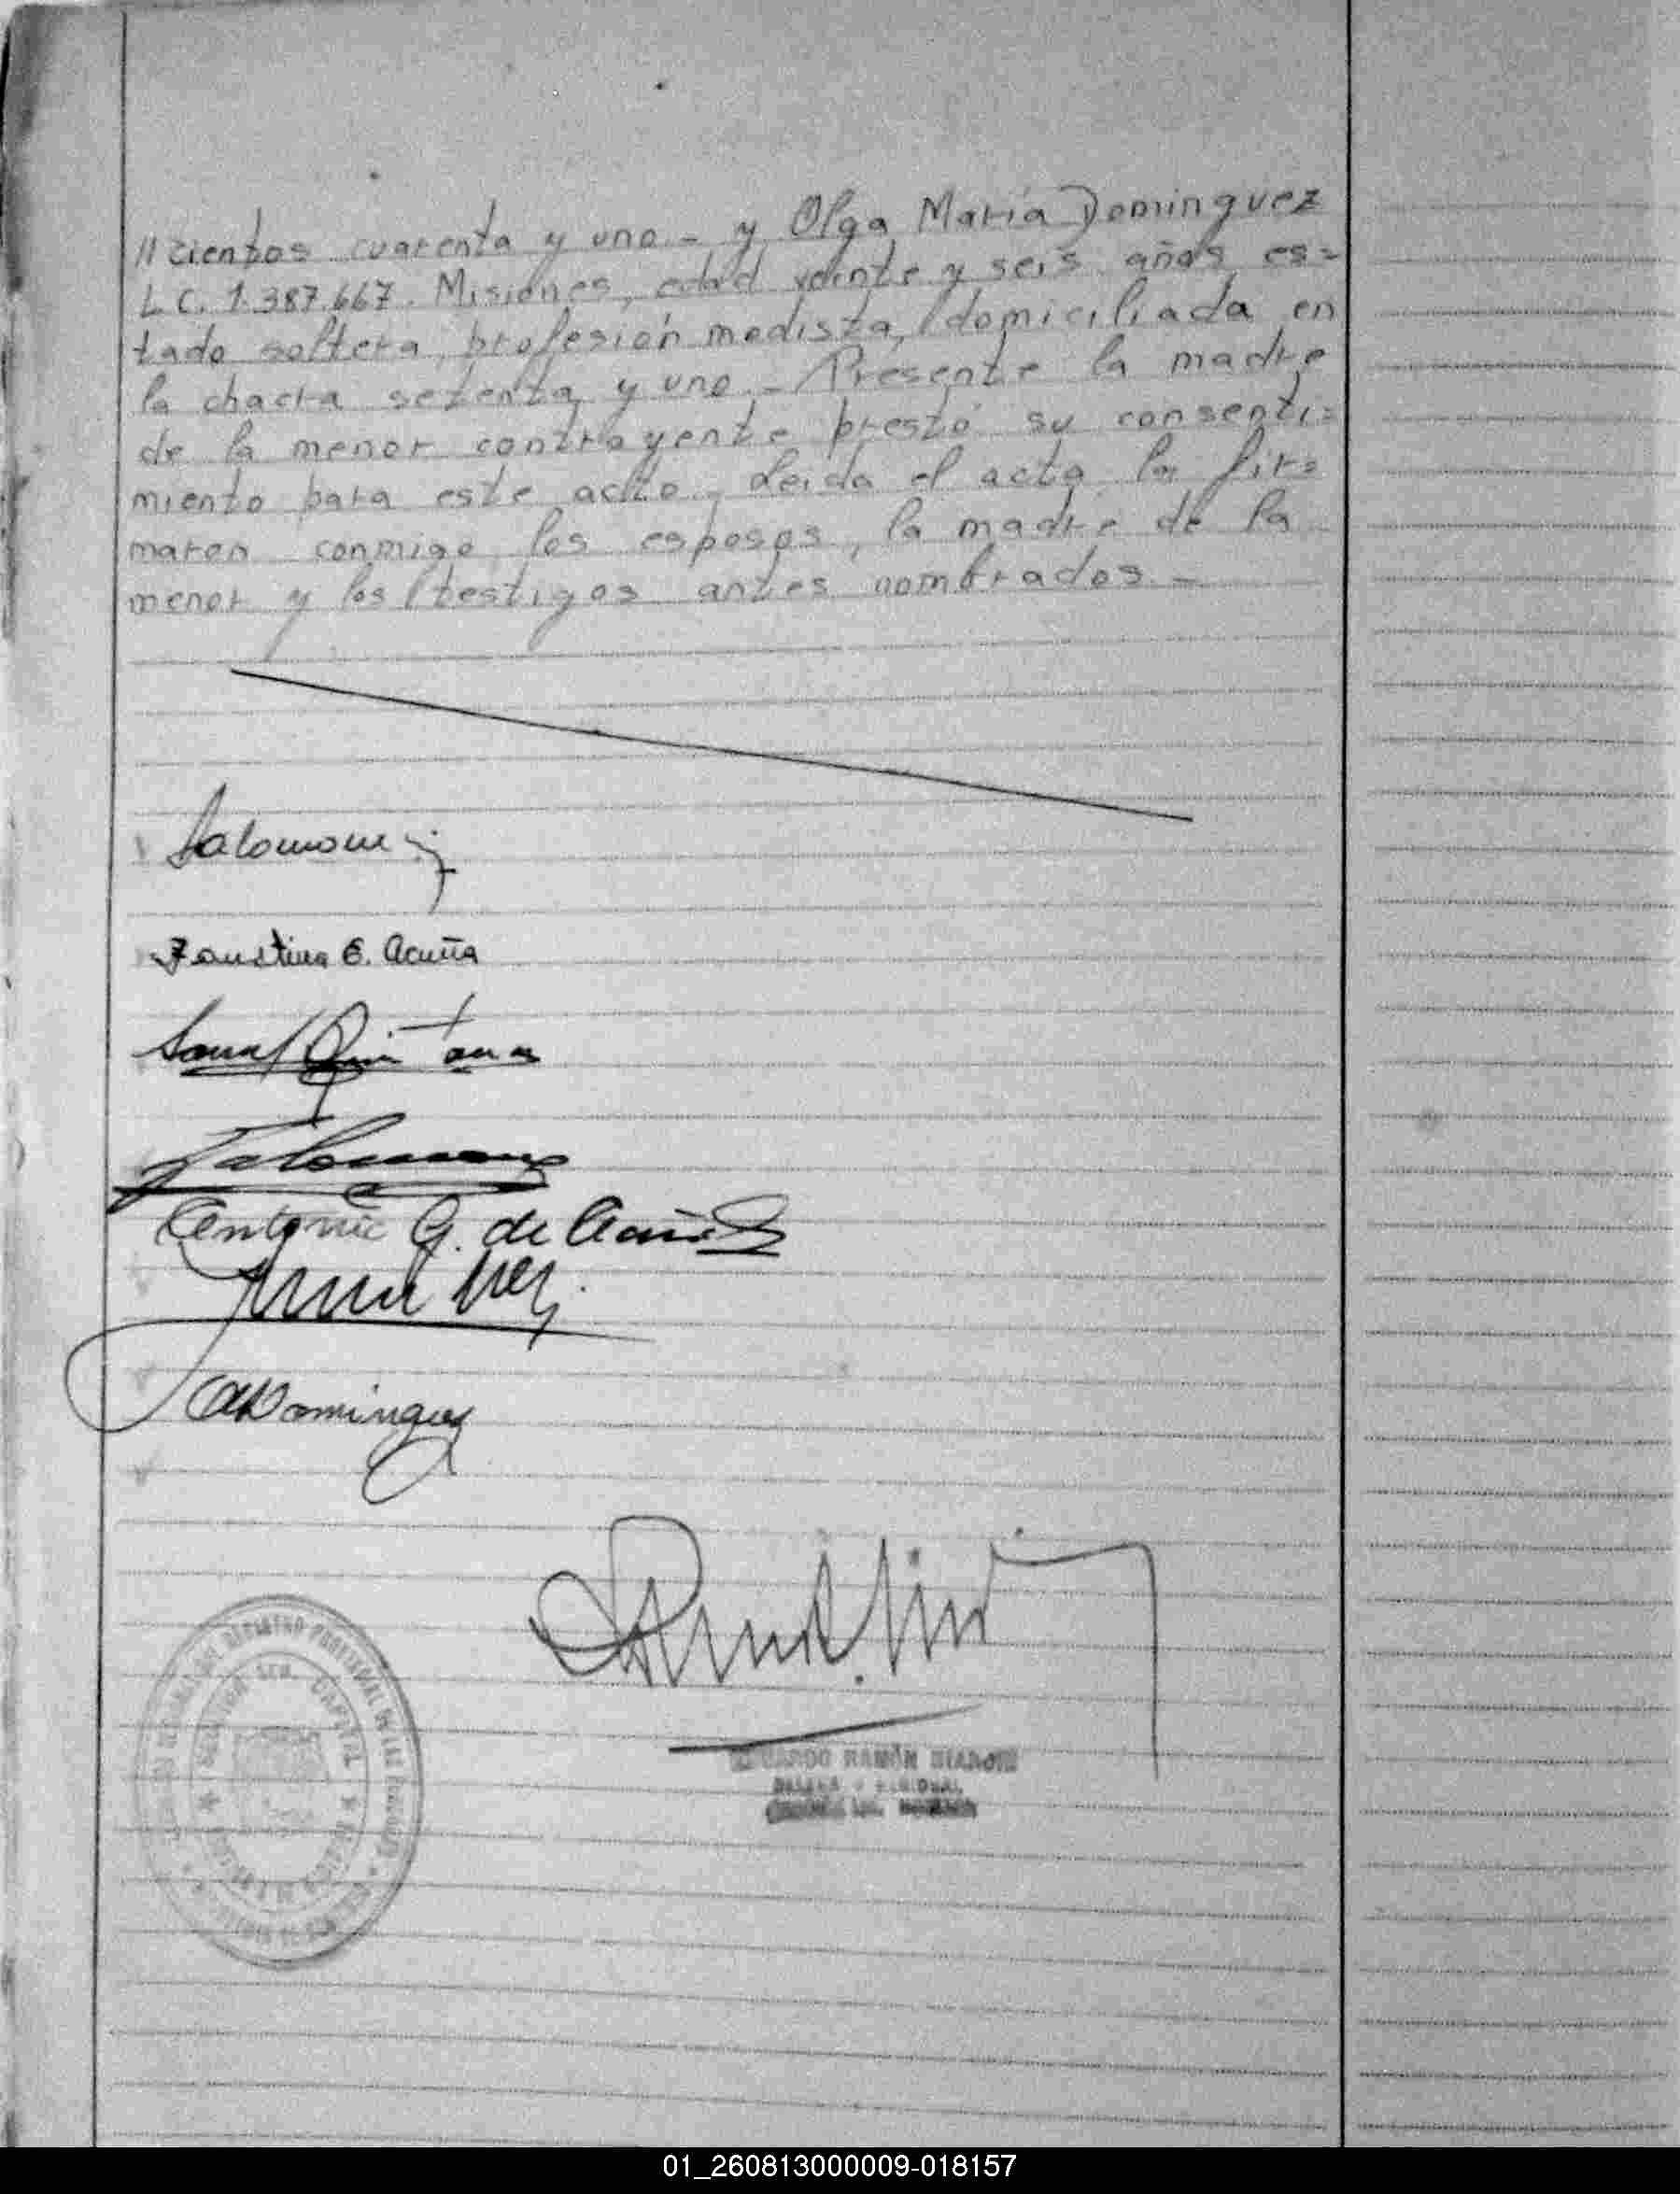 // cientos cuarenta y uno - y Olga María Dominguez
L.C. 1.387.667. Misiones, edad veinte y seis años es=
tado soltera, profesión modista, domiciliada en
la chacra setenta y uno. - Presente la madre
de la menor contrayente prestó su consenti=
miento para este acto. Leida el acta, la fir=
maron conmigo los esposos, la madre de la
menor y los testigos antes nombrados. -
Salomoni
Faustina E. Acuña
Quintana
Antonia G. de Acuña
Dominguez
REGISTRO PROVINCIAL DE LAS PERSONAS
CAPITAL
RAMÓN
01_260813000009-018157